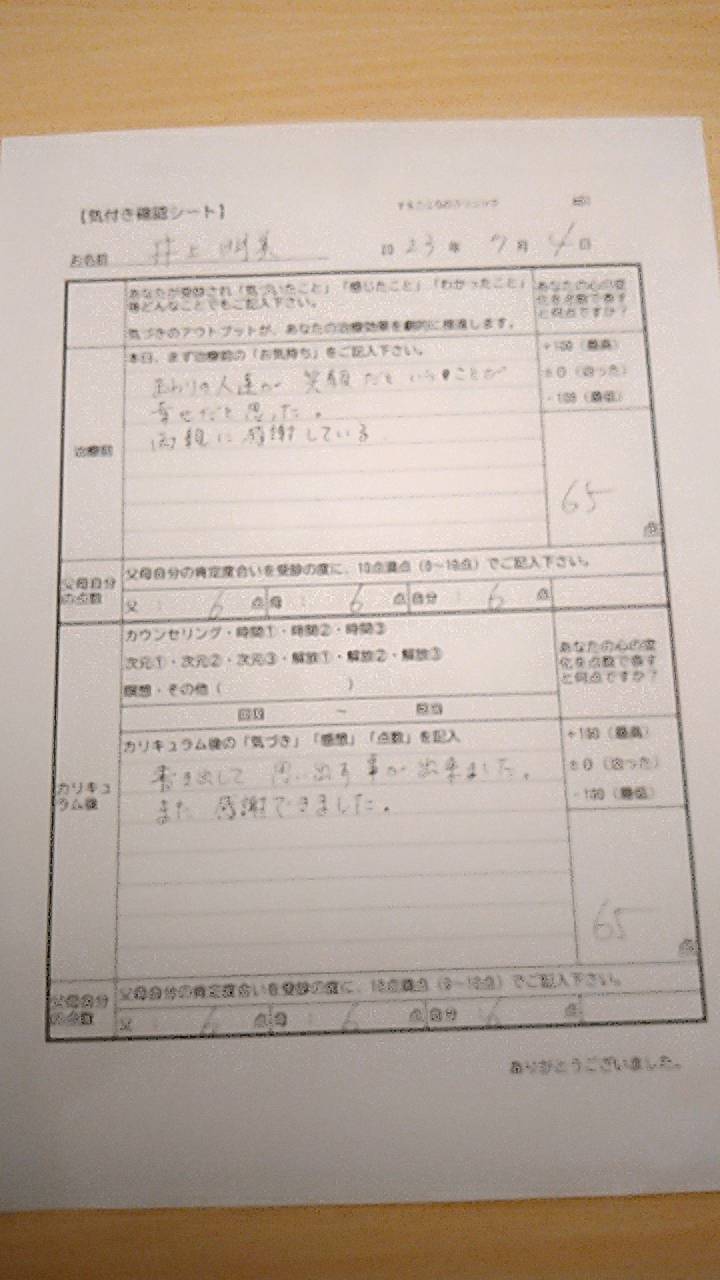 【気付き確認シート】
お名前 井上明美 23年 7月 4日
あなたが受診され「気づいたこと」「感じたこと」「わかったこと」
等どんなことでもご記入下さい。
気づきのアウトプットが、あなたの治療効果を劇的に促進します。
あなたの心の変
化を点数で表す
と何点ですか？
治療前
本日、まず治療前の「お気持ち」をご記入下さい。
まわりの人達が 笑顔だということが
幸せだと思った。
両親に感謝している
+100（最高）
±0（迷った）
-100（最低）
65
点
父母自分
の点数
父母自分の肯定度合いを受診の度に、10点満点（0～10点）でご記入下さい。
父： 6 点 母： 6 点 自分： 6 点
カウンセリング・時間①・時間②・時間③
次元①・次元②・次元③・解放①・解放②・解放③
瞑想・その他（ ）
回目 ～ 担当
あなたの心の変
化を点数で表す
と何点ですか？
カリキュ
ラム後
カリキュラム後の「気づき」「感想」「点数」を記入
書き出して 思い出す事が出来ました。
また 感謝できました。
+100（最高）
±0（迷った）
-100（最低）
65
点
父母自分
の点数
父母自分の肯定度合いを受診の度に、10点満点（0～10点）でご記入下さい。
父： 6 点 母： 6 点 自分 6 点
ありがとうございました。